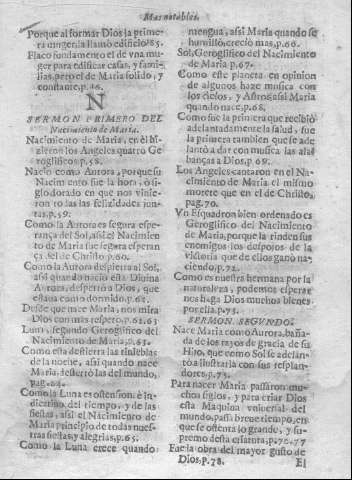 Mas notables.
Porque al formar Dios la prime-
ra muger la llamò edificio 85.
Flaco fundamento el de vna mu-
ger para edificar casas, y fami-
lias, pero el de Maria solido, y
constante, p.46.
N
SERMON PRIMERO DEL
Nacimiento de Maria.
Nacimiento de Maria, en èl hi-
zieron los Angeles quatro Ge
roglificos p.58.
Naciò como Aurora, porque su
Nacimiento fue la hora, ò si-
glo dorado en que nos vinie-
ron todas las felizidades jun-
tas, p.59.
Como la Aurora es segura espe-
rança del Sol, assi el Nacimien
to de Maria fue segura esperan
ça del de Christo, p.60.
Como la Aurora despierta al Sol,
assi quando naciò esta Divina
Aurora, despertò a Dios, que
estaua como dormido, p.62.
Desde que nace Maria, nos mira
Dios con mas respeto, p.62.63
Luna, segundo Geroglifico del
Nacimiento de Maria, p.63.
Como esta destierra las tinieblas
de la noche, assi quando nace
Maria, desterrò las del mundo,
pag.64.
Como la Luna es ostension, è in-
dicativo del tiempo, y de las
fiestas, assi el Nacimiento de
Maria principio de todas nues-
tras fiestas, y alegrias, p.65.
Como la Luna crece quando
mengua, assi Maria quando se
humillò, creciò mas, p.66.
Sol, Geroglifico del Nacimiento
de Maria p.67.
Como este planeta en opinion
de algunos haze musica con
los cielos, y Astros, assi Maria
quando nace, p.68.
Como fue la primera que recibiò
adelantadamente la salud, fue
la primera tambien que se ade
lantò a dar con musica las ala-
banças a Dios, p.69.
Los Angeles cantaron en el Na-
cimiento de Maria el mismo
motete que en el de Christo,
pag.70.
Vn Esquadron bien ordenado es
Geroglifico del Nacimiento
de Maria, porque la rinden sus
enemigos los despojos de la
vitoria que de ellos ganò na-
ciendo, p.72.
Como es nuestra hermana por la
naturaleza, podemos esperar
nos haga Dios muchos bienes
por ella, p.73.
SERMON SEGVNDO.
Nace Maria como Aurora, baña-
da de los rayos de gracia de su
Hijo, que como Sol se adelan-
tò a ilustrarla con sus resplan-
dores, p.75.
Para nacer Maria passaron mu-
chos siglos, y para criar Dios
esta Maquina vniuersal del
mundo, passa breve tiempo, en
que se ostenta lo grande, y su-
premo desta criatura, p.76.77
Fue la obra del mayor gusto de
Dios, p.78.
El